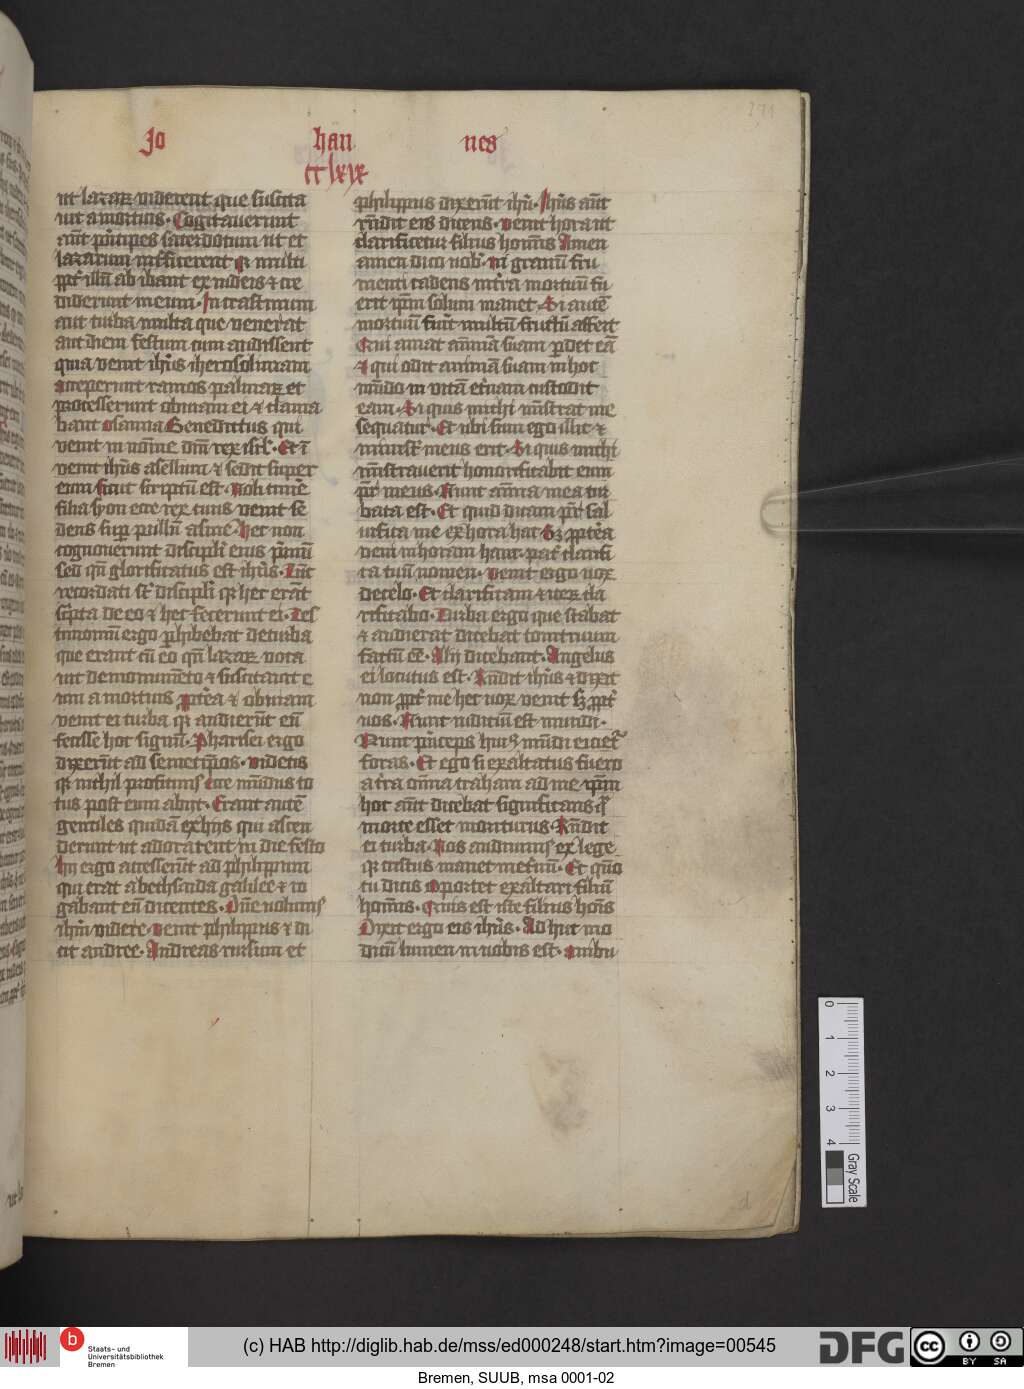 Jo han nes
cclxix
ut lazarꝝ viderent que suscita
uit a mortuis. Cogitaverunt
aūt pͥncipes sacerdotum ut et
lazarum interficerent qꝛ multi
ꝓpt̄ illū ab ibant ex iudeis ⁊ cre
diderunt in eum. In crastinum
aut turba multa que venerat
aut diem festum cum audissent
quia venit ihūs iherosolimam
acceperunt ramos palmaꝝ et
processerunt obuiam ei ⁊ clama
bant osanna Benedictus qui
venit in noīne dnī rex isrl̄. Et ī
venit ihūs asellum ⁊ sedit super
eum sicut scriptū est. Noli timē
filia syon ecce rex tuus venit se
dens suꝑ pullū asine. Hec non
cognoverunt discipli eius pͥmū
sed qn̄ glorificatus est ihūs. Tūc
recordati st̄ discipli qꝛ hec erāt
scͥpta de eo ⁊ hec fecerunt ei. Tes
timoniū ergo ꝑhibebat de turba
que erant cū eo qn̄ lazaꝝ voca
uit de monumēto ⁊ suscitauit e
um a mortuis. ꝓpt̄ea ⁊ obuiam
venit ei turba qꝛ audierūt eū
fecisse hoc signū. Pharisei ergo
dixerūt ad semetip̄os. videtis
qꝛ nichil proficimꝰ ecce mūdus to
tus post eum abijt. Erant autē
gentiles quidā ex hijs qui ascen
derunt ut adorarent in die festo
Hij ergo accesserūt ad philippum
qui erat a bethsaida galilee ⁊ ro
gabant eū dicentes. Dn̄e volumꝰ
ihm̄ videre. venit philippus ⁊ di
cit andree. Andreas rursum et
philippus dixerūt ihū. Ihūs aūt
rn̄dit eis dicens. venit hora ut
clarificetur filius homīs Amen
amen dico uob̄ ni granū fru
menti cadens in tr̄ra mortuum fu
erit ip̄m solum manet. Si autē
mortuū fuit̄ multū fructū affert
Qui amat aīmā suam ꝑdet eā
⁊ qui odit animā suam in hoc
mūdo in vitā et̄nam custodit
eam. Si quis michi mīstrat me
sequatur. Et ubi sum ego illic ⁊
ministr̄ meus erit. Si quis michi
mīstraverit honorificabit eum
pr̄ meus. Nunc aīma mea tur
bata est. Et quid dicam pr̄ sal
uifica me ex hora hac Sꝫ ꝓpt̄ea
veni in horam hanc. pat̄ clarifi
ca tuū nomen. venit ergo uox
de celo. Et clarificam ⁊ iteꝝ cla
rificabo. Turba ergo que stabat
⁊ audierat dicebat tonitruum
factum eē. Alij dicebant. Angelus
ei locutus est. Rn̄dit ihūs ⁊ dixit
non ꝓpt̄ me hec uox venit sꝫ ꝓpt̄
uos. Nunc iudicium est mundi.
Nunc pͥnceps huiꝰ mūdi eicietᷣ
foras. Et ego si exaltatus fuero
a tr̄ra om̄ia traham ad me ip̄m
hoc aūt dicebat significans qͣ
morte esset moriturus. Rn̄dit
ei turba. Nos audiuimꝰ ex lege
qꝛ cristus manet in et̄nū. Et qūo
tu dicis Oportet exaltari filiū
homīs. Quis est iste filius homīs
Dixit ergo eis ihūs. Adhuc mo
dicū lumen in uobis est. ambu
0 1 2 3 4
Gray Scale
b
Staats- und
Universitätsbibliothek
Bremen
(c) HAB http://diglib.hab.de/mss/ed000248/start.htm?image=00545
DFG
cc BY SA
Bremen, SUUB, msa 0001-02